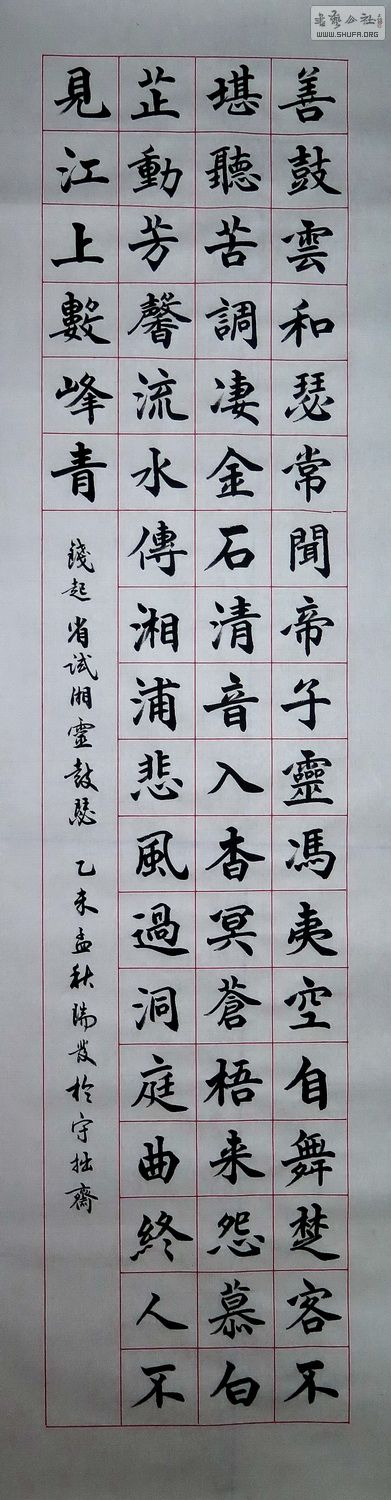 善鼓雲和瑟常聞帝子靈馮夷空自舞楚客不
堪聽苦調凄金石清音入杳冥蒼梧来怨慕白
芷動芳馨流水傳湘浦悲風過洞庭曲終人不
見江上數峰青
錢起省試湘靈鼓瑟 乙未孟秋瑞發於守拙齋
書藝公社
WWW.SHUFA.ORG